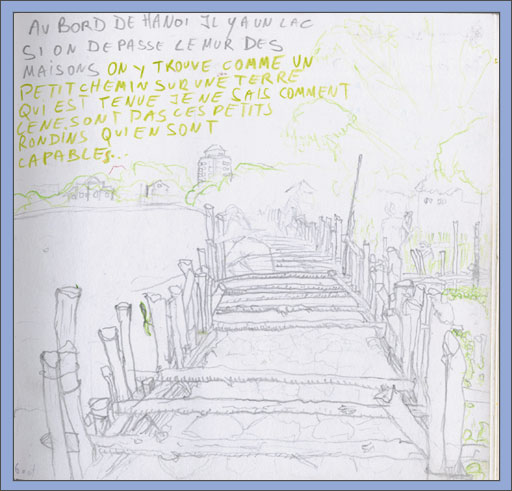 AU BORD DE HANOI IL Y A UN LAC
SI ON DEPASSE LE MUR DES
MAISONS ON Y TROUVE COMME UN
PETIT CHEMIN SUR UNE TERRE
QUI EST TENUE JE NE SAIS COMMENT
CE NE SONT PAS CES PETITS
RONDINS QUI EN SONT
CAPABLES...